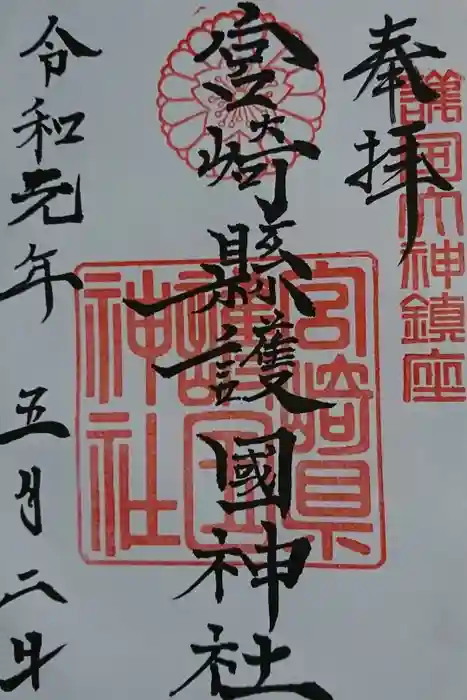 奉拝
護国大神鎮座
宮崎縣護國神社
宮崎県
護国
神社
令和元年
五月二日